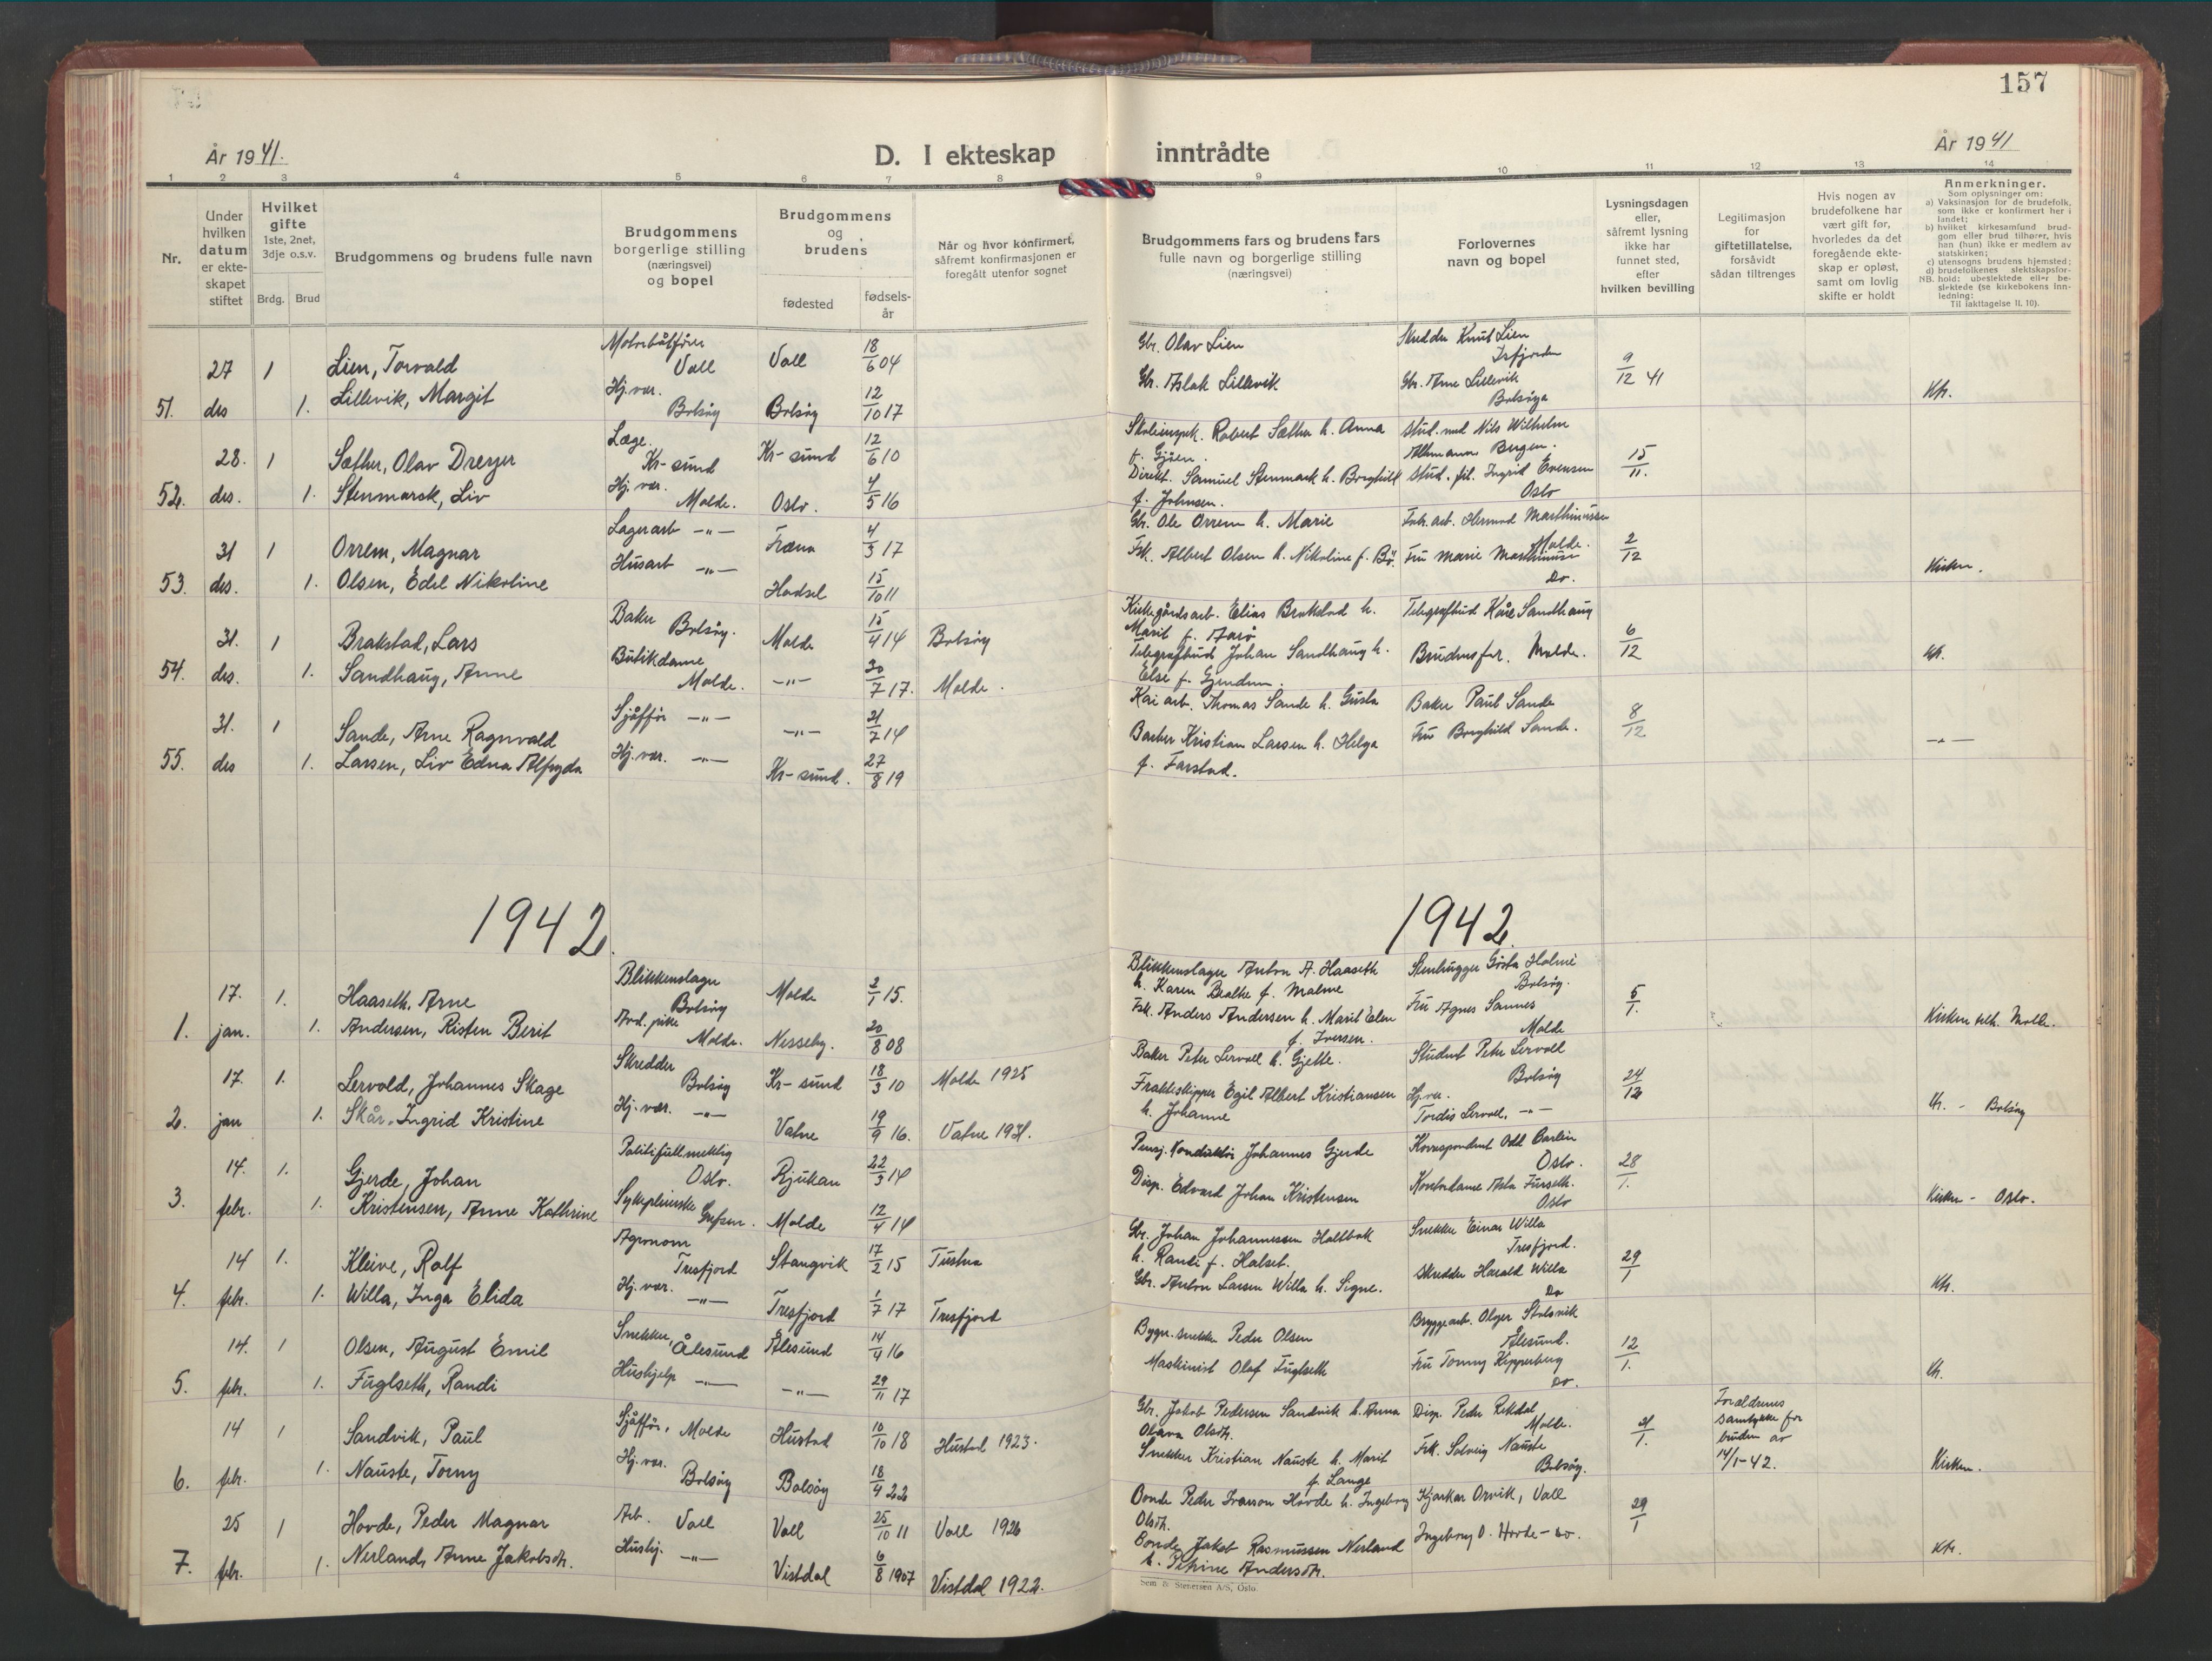 157
År 1941.
D. I ekteskap inntrådte
År 1941
1 2 3 4 5 6 7 8 9 10 11 12 13 14
Nr.
Under hvilken datum er ekteskapet stiftet
Hvilket gifte
1ste, 2net, 3dje o.s.v.
Brdg. Brud
Brudgommens og brudens fulle navn
Brudgommens borgerlige stilling (næringsvei) og bopel
Brudgommens og brudens
fødested
fødsels-år
Når og hvor konfirmert, såfremt konfirmasjonen er foregått utenfor sognet
Brudgommens fars og brudens fars fulle navn og borgerlige stilling (næringsvei)
Forlovernes navn og bopel
Lysningsdagen eller, såfremt lysning ikke har funnet sted, efter hvilken bevilling
Legitimasjon for giftetillatelse, forsåvidt sådan tiltrenges
Hvis nogen av brudefolkene har vært gift før, hvorledes da det foregående ekteskap er opløst, samt om lovlig skifte er holdt
Anmerkninger.
Som oplysninger om:
a) Vaksinasjon for de brudefolk, som ikke er konfirmert her i landet;
b) hvilket kirkesamfund brudgom eller brud tilhører, hvis han (hun) ikke er medlem av statskirken;
c) utensogns brudens hjemsted;
d) brudefolkenes slektskapsforhold: ubeslektede eller beslektede (se kirkebokens innledning:
NB. Til iakttagelse II. 10).
27 1 Lien, Torvald Motorbåtfører Voll Voll 18/6 04 Gbr. Olav Lien Skredder Knut Lien Isfjorden 9/12 41
51. des 1. Lillevik, Margit Hj.vær. Bolsøy Bolsøy 12/10 17 Gbr. Aslak Lillevik Gbr. Arne Lillevik Bolsøya Kr.
28. 1 Sæther, Olav Dreyer Læge. Kr-sund Kr-sund 12/6 10 Skoleinspek. Robert Sæther h. Anna f. Gjøen. Stud. med Nils Wilhelm Bergen. 15/11.
52. des. 1. Stenmarck, Liv Hj.vær. Molde. Oslo. 4/5 16 Direkt. Samuel Stenmark h. Borghild f. Johnsen. Stud. fil. Ingrid Evensen Oslo
31 1 Orrem, Magnar Lagerarb -"- Fræna 4/3 17 Gbr. Ole Orrem h. Marie Fabr.arb. Hermod Marthinussen Molde. 2/12
53. des. 1. Olsen, Edel Nikoline Husarb -"- Hadsel 15/10 11 Fsk. Albert Olsen h. Nikoline f. Bø. Fru Marie Marthinussen Do. Kirken.
31. 1 Brakstad, Lars Baker Bolsøy. Molde 15/4 14 Bolsøy Kirkegårdsarb. Elias Brakstad h. Marit f. Aarø Telegrafbud Kåre Sandhaug 6/12
54. des. 1. Sandhaug, Anne Butikdame Molde. -"- 30/7 17. Molde. Telegrafbud Johan Sandhaug h. Else f. Gjendem. Brudens far. Molde. Kr.
31. 1 Sande, Arne Ragnvald Sjåffør -"- -"- 21/7 14 Kai arb. Thomas Sande h. Gusta Baker Paul Sande 8/12
55. des 1. Larsen, Liv Edna Alfryda Hj.vær. -"- Kr-sund. 27/8 19 Barber Kristian Larsen h. Helga f. Farstad. Fru Borghild Sande. -"-
1942. 1942.
17. 1. Haaseth, Arne Blikkenslager Bolsøy Molde 2/1 15. Blikkenslager Anton A. Haaseth h. Karen Beathe f. Malme Stenhugger Gösta Holme Bolsøy. 5/1.
1. jan. 1. Andersen, Risten Berit Arb.pike Molde. Nesseby. 20/8 08 Fsk. Anders Andersen h. Marit Elen f. Iversen. Fru Agnes Sannes Molde Kirken tilh. Molde.
17. 1. Lervold, Johannes Skage Skredder Bolsøy Kr-sund 18/3 10 Molde 1925 Baker Peter Lervoll h. Gjette. Student Peter Lervoll Bolsøy 24/12
2. jan 1. Skår, Ingrid Kristine Hj.vær. -"- Vatne 19/9 16. Vatne 1931. Fraktskipper Egil Albert Kristiansen h. Johanne Hj.vær. Tordis Lervoll. -"- Kr. - Bolsøy
14. 1. Gjerde, Johan Politifullmektig Oslo. Rjukan 22/3 14 Pensj. Konduktør Johannes Gjerde Korrespondent Odd Oslo. 28/1.
3. febr. 1. Kristensen, Anne Kathrine Sykepleierske Grefsen. Molde 12/4 14 Disp. Edvard Johan Kristensen Kontordame Asta Furseth. Oslo Kirken - Oslo.
14 1. Kleive, Rolf Agronom Tresfjord Stangvik 17/2 15 Tustna Gbr. Johan Johannessen Holtbak h. Randi f. Halset. Snekker Einar Willa Tresfjord. 29/1
4. febr. 1. Willa, Inga Elida Hj.vær. -"- Tresfjord 1/7 17 Tresfjord Gbr. Anton Larsen Willa h. Signe. Skredder Harald Willa Do Kr.
14. 1 Olsen, August Emil Snekker, Ålesund Ålesund 14/4 16 Bygn.snekker Peder Olsen Bryggearb. Olger Stolsvik Ålesund. 12/1.
5. febr. 1. Fuglseth, Randi Hushjelp -"- -"- 29/11 17 Maskinist Olaf Fuglseth Fru Tonny Kipperberg Do. Kr.
14 1 Sandvik, Paul Sjåffør, Molde Hustad 10/10 18 Hustad 1923. Gbr. Jakob Pedersen Sandvik h. Anna Olava Olsdtr. Disp. Peder Rekdal Molde. 21/1. Forældrenes samtykke for bruden av 14/1-42.
6. febr. 1. Nauste, Torny Hj.vær. Bolsøy Bolsøy 18/4 22 Snekker Kristian Nauste h. Marit f. Lange Frk. Solveig Nauste Bolsøy. Kirken.
25 1 Hovde, Peder Magnar Arb. Voll Voll 25/10 11 Voll 1926 Bonde Peder Iverson Hovde h. Ingeborg Olsdtr. Hjarkar Orvik, Voll 29/1
7. febr. 1. Nerland, Anne Jakobsdtr. Hushj. -"- Vistdal 6/8 1907 Vistdal 1922. Bonde Jakob Rasmussen Nerland h. Petrine Andersdtr. Ingeborg O. Hovde - do. Kr.
Sem & Stenersen A/S, Oslo.